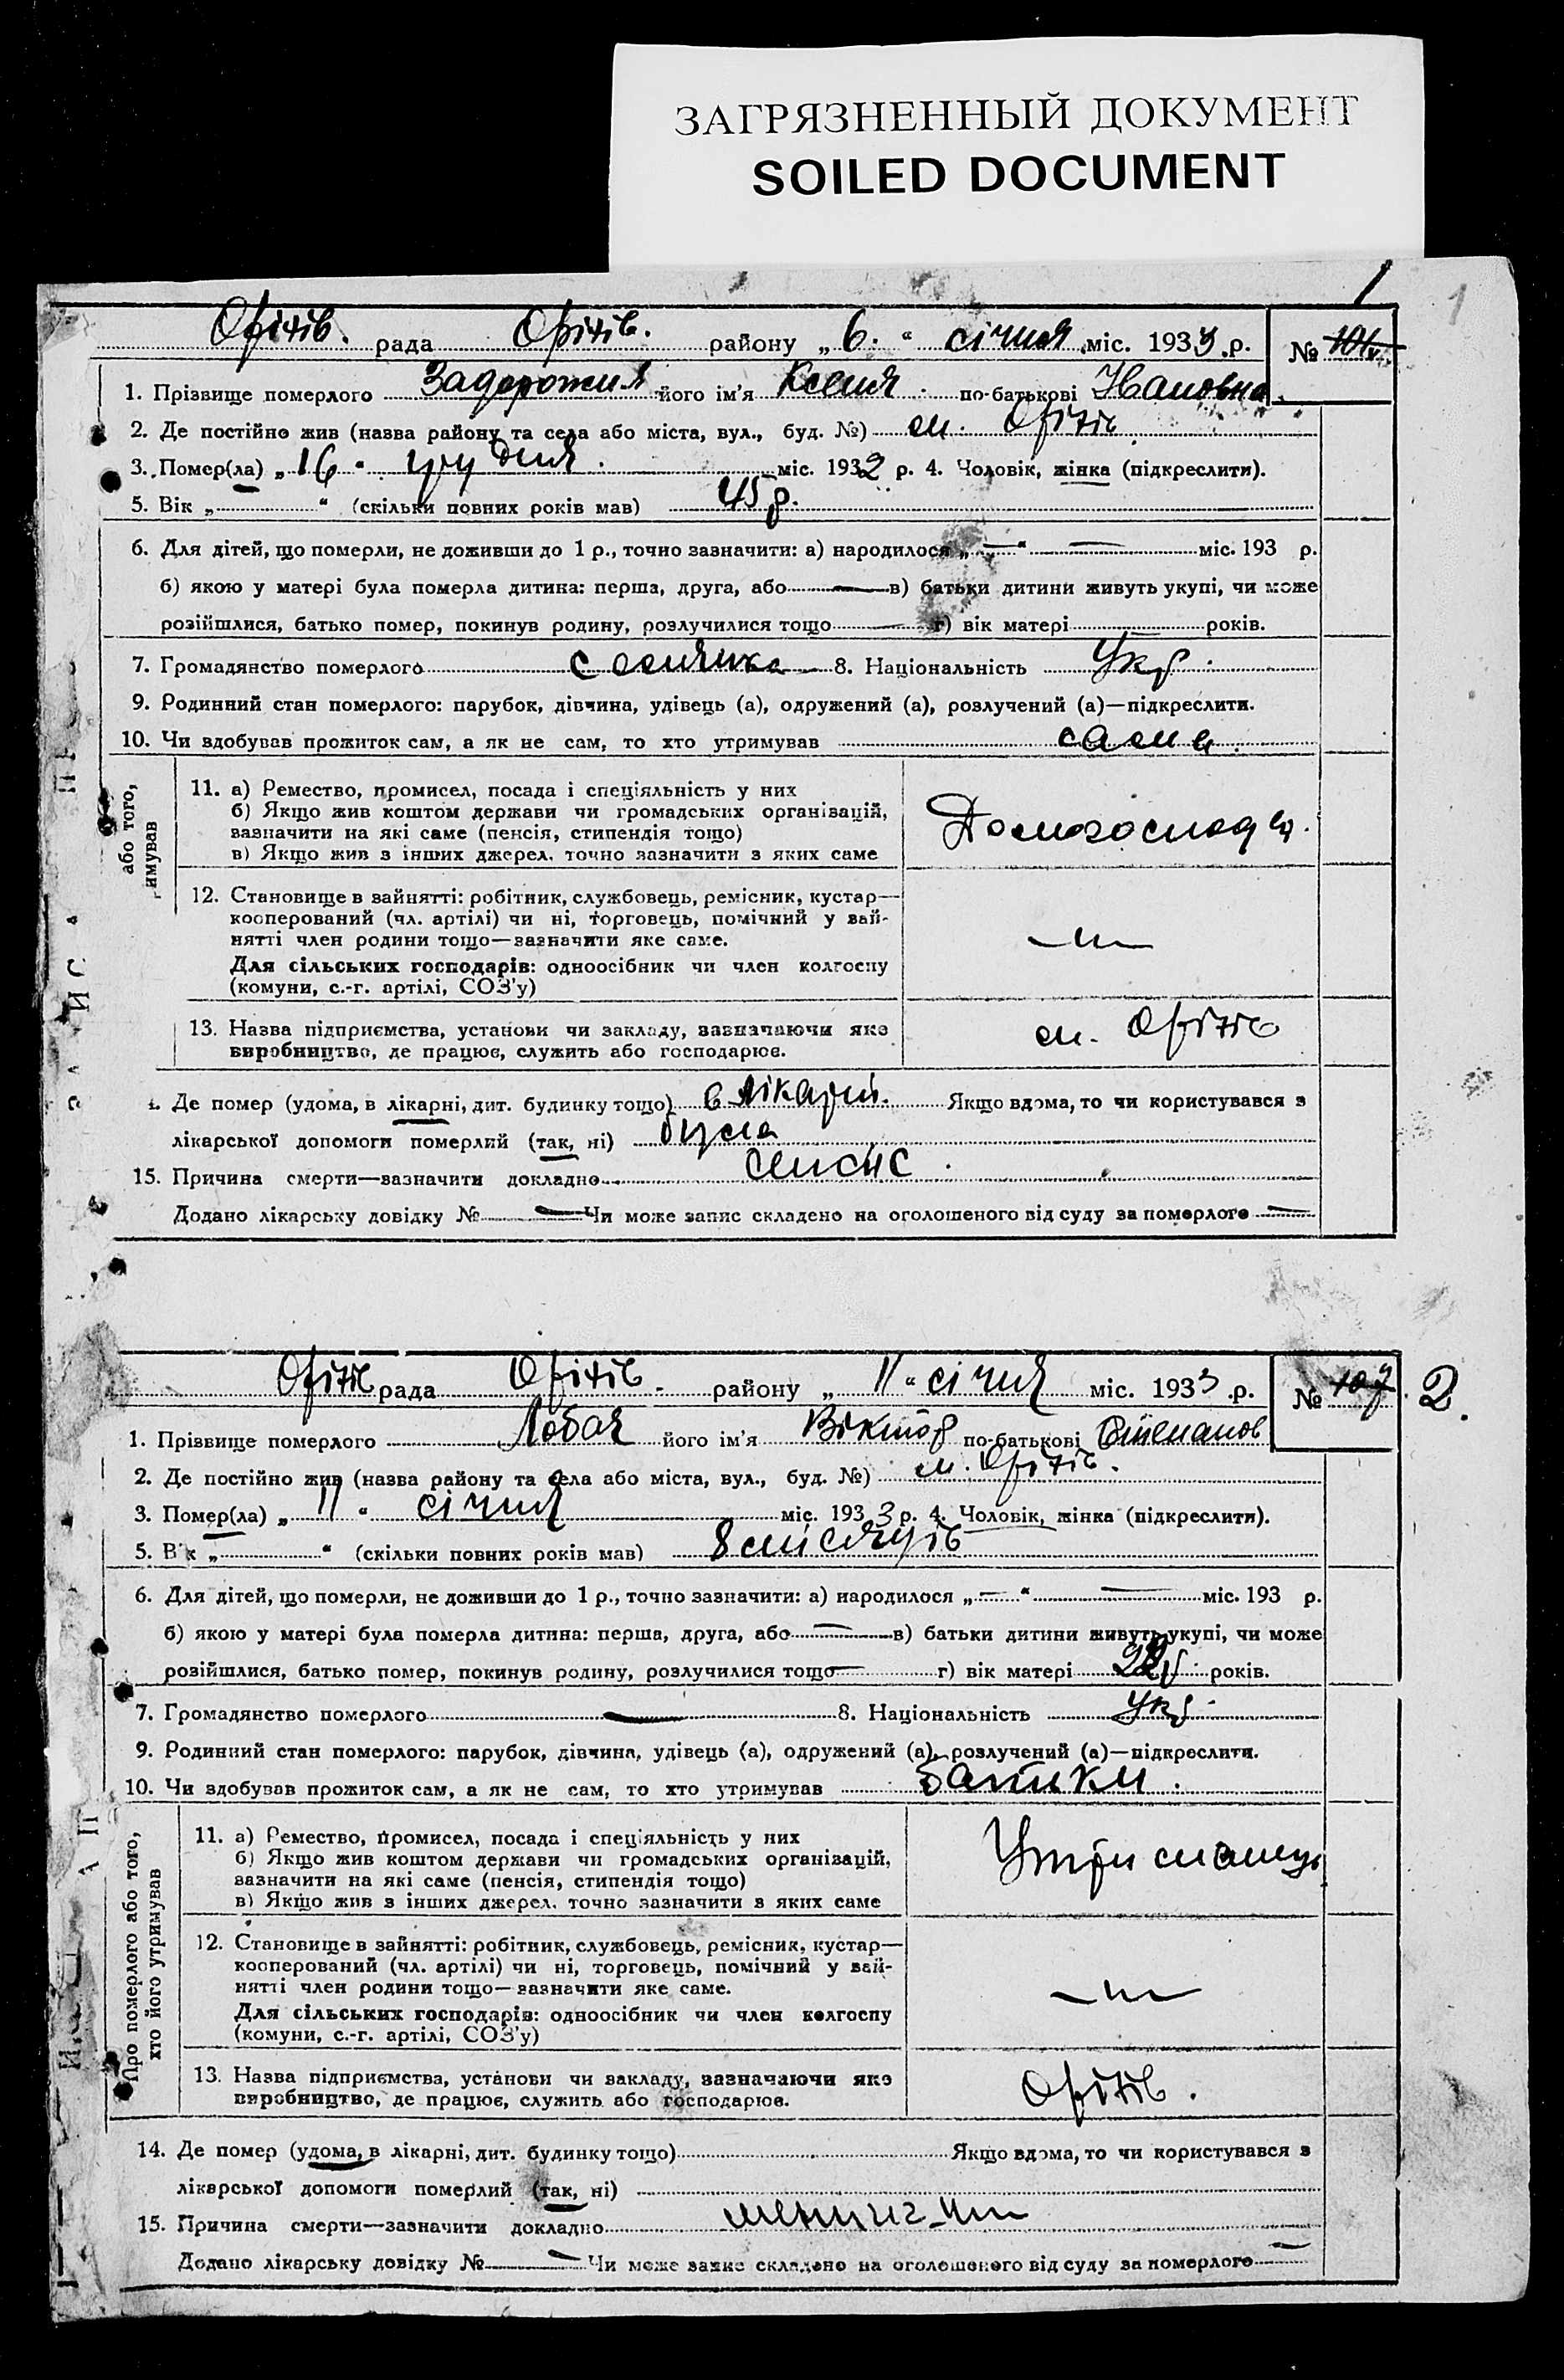 ЗАГРЯЗНЕННЫЙ ДОКУМЕНТ
SOILED DOCUMENT
1
1
Оріхів. рада Оріхів. району „ 6. “ січня міс. 1933 р. №
1. Прізвище померлого Задорожня його ім'я Ксенія по-батькові Івановна
2. Де постійно жив (назва району та села або міста, вул., буд. №) м. Оріхів
3. Помер(ла) „ 16 “ грудня. міс. 1932 р. 4. Чоловік, жінка (підкреслити).
5. Вік „ “ (скільки повних років мав) 45 р.
6. Для дітей, що померли, не доживши до 1 р., точно зазначити: а) народилося „—“ — міс. 193 р.
б) якою у матері була померла дитина: перша, друга, або — в) батьки дитини живуть укупі, чи може
розійшлися, батько помер, покинув родину, розлучилися тощо — г) вік матері — років.
7. Громадянство померлого 8. Національність Укр.
9. Родинний стан померлого: парубок, дівчина, удівець (а), одружений (а), розлучений (а)—підкреслити.
10. Чи здобував прожиток сам, а як не сам, то хто утримував сама.
або того,
имував
11. а) Ремество, промисел, посада і спеціяльність у них
б) Якщо жив коштом держави чи громадських організацій,
зазначити на які саме (пенсія, стипендія тощо)
в) Якщо жив з інших джерел, точно зазначити з яких саме
Домогоспод.
12. Становище в зайнятті: робітник, службовець, ремісник, кустар—
кооперований (чл. артілі) чи ні, торговець, помічний у зай-
нятті член родини тощо—зазначити яке саме.
Для сільських господарів: одноосібник чи член колгоспу
(комуни, с.-г. артілі, СОЗ'у)
—"—
13. Назва підприємства, установи чи закладу, зазначаючи яке
виробництво, де працює, служить або господарює.
м. Оріхів
Де помер (удома, в лікарні, дит. будинку тощо) в лікарні. Якщо вдома, то чи користувався з
лікарської допомоги померлий (так, ні) була
15. Причина смерти—зазначити докладно сепсис.
Додано лікарську довідку № — Чи може запис складено на оголошеного від суду за померлого —
Оріхів рада Оріхів. району „ 11 “ січня міс. 1933 р. № 107 2.
1. Прізвище померлого Лобач його ім'я Віктор по-батькові Степанов
2. Де постійно жив (назва району та села або міста, вул., буд. №) м. Оріхів.
3. Помер(ла) „ 11 “ січня міс. 1933 р. 4. Чоловік, жінка (підкреслити).
5. Вік „ “ (скільки повних років мав) 8 місяців
6. Для дітей, що померли, не доживши до 1 р., точно зазначити: а) народилося „—“ — міс. 193 р.
б) якою у матері була померла дитина: перша, друга, або — в) батьки дитини живуть укупі, чи може
розійшлися, батько помер, покинув родину, розлучилися тощо — г) вік матері років.
7. Громадянство померлого — 8. Національність Укр.
9. Родинний стан померлого: парубок, дівчина, удівець (а), одружений (а), розлучений (а)—підкреслити.
10. Чи здобував прожиток сам, а як не сам, то хто утримував батьки.
Про померлого або того,
хто його утримував
11. а) Ремество, промисел, посада і спеціяльність у них
б) Якщо жив коштом держави чи громадських організацій,
зазначити на які саме (пенсія, стипендія тощо)
в) Якщо жив з інших джерел, точно зазначити з яких саме
Утриманець
12. Становище в зайнятті: робітник, службовець, ремісник, кустар—
кооперований (чл. артілі) чи ні, торговець, помічний у зай-
нятті член родини тощо—зазначити яке саме.
Для сільських господарів: одноосібник чи член колгоспу
(комуни, с.-г. артілі, СОЗ'у)
—"—
13. Назва підприємства, установи чи закладу, зазначаючи яке
виробництво, де працює, служить або господарює.
Оріхів.
14. Де помер (удома, в лікарні, дит. будинку тощо) Якщо вдома, то чи користувався з
лікарської допомоги померлий (так, ні)
15. Причина смерти—зазначити докладно менингит
Додано лікарську довідку № — Чи може запис складено на оголошеного від суду за померлого —